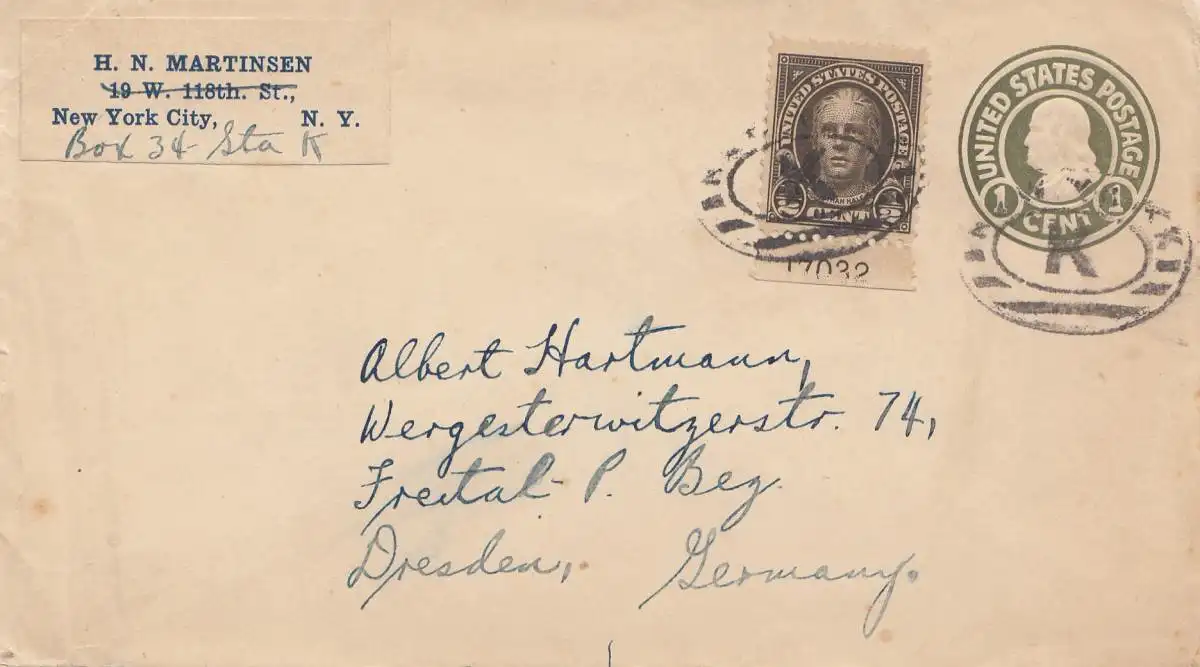 H. N. MARTINSEN
19 W. 118th. St.,
New York City, N. Y.
Box 34 Sta K
UNITED STATES POSTAGE
1/2 CENT 1/2
17032
UNITED STATES POSTAGE
1 CENT 1
K
Albert Hartmann,
Wergesterwitzerstr. 74,
Freital - P. Bez.
Dresden, Germany.